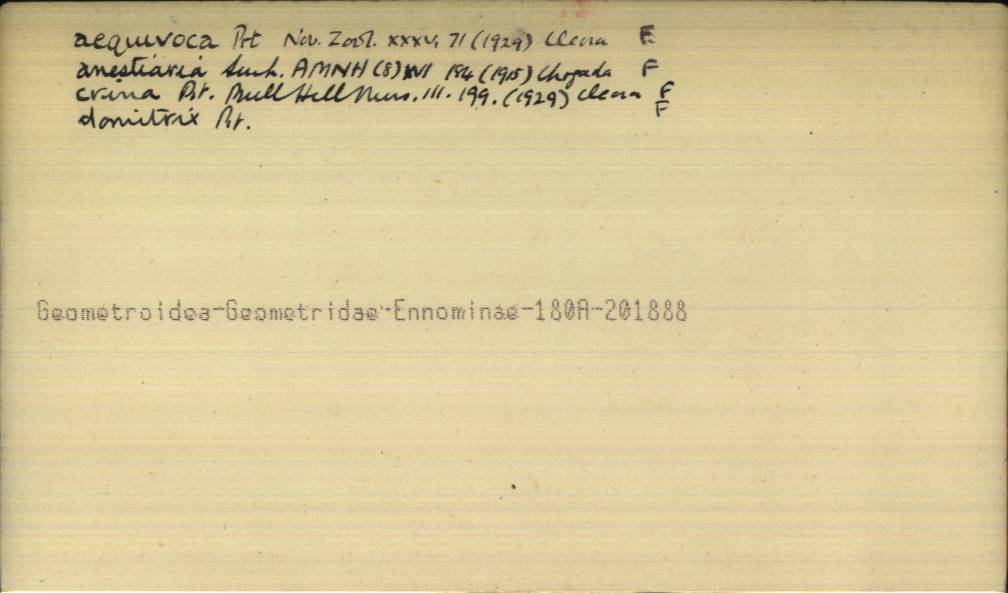 aequivoca Prt Nov. Zool. XXXV, 71 (1929) Cleora F
anestiaria Swh. AMNH (8) XVI 184 (1915) Chogada F
crina Prt. Bull Hill Mus. III. 199. (1929) Cleora F
domitrix Prt. F
Geometroidea-Geometridae-Ennominae-180A-201888